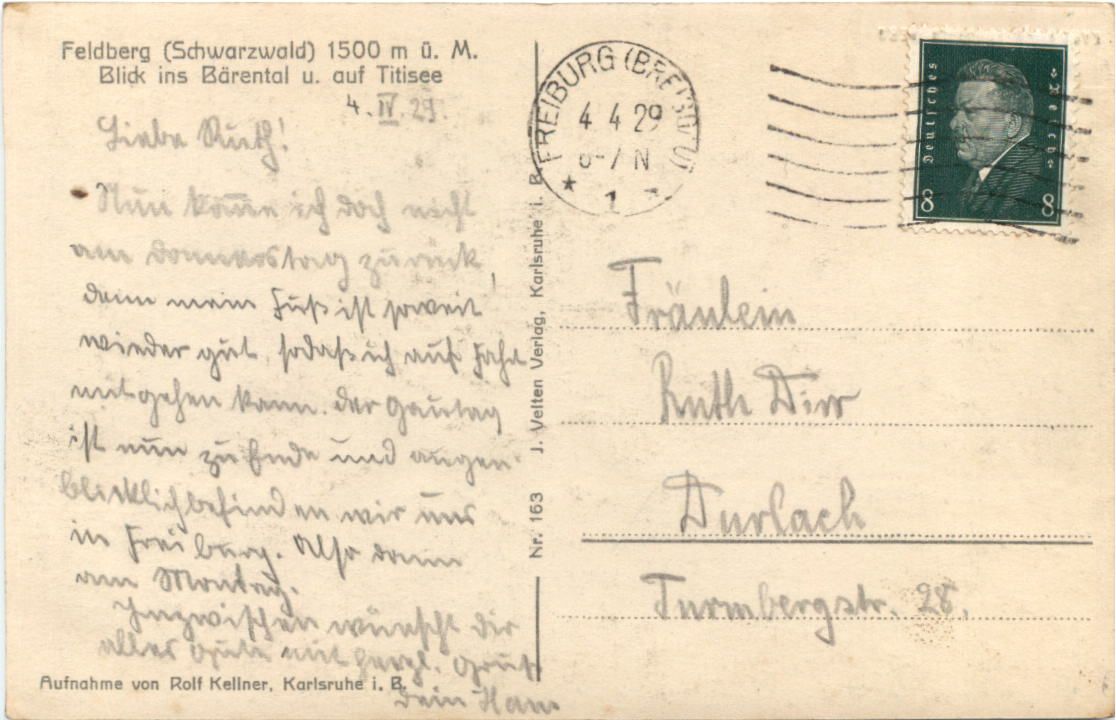 Feldberg (Schwarzwald) 1500 m ü. M.
Blick ins Bärental u. auf Titisee
4. IV. 29.
Liebe Ruth!
Nun komme ich doch nicht
am Donnerstag zurück,
denn mein Fuß ist soweit
wieder gut, sodaß ich auf Fahrt
mitgehen kann. Der Gautag
ist nun zu Ende und augen-
blicklich befinden wir uns
in Freiburg. Also dann
am Montag.
Inzwischen wünscht dir
alles Gute mit herzl. Gruß
Dein Hans
Aufnahme von Rolf Kellner, Karlsruhe i. B.
Nr. 163 J. Velten Verlag, Karlsruhe i. B.
FREIBURG (BREISGAU)
4 4 29
6-7 N
* 1 *
Deutsches
Reich
8 8
Fräulein
Ruth Dirr
Durlach
Turmbergstr. 28.